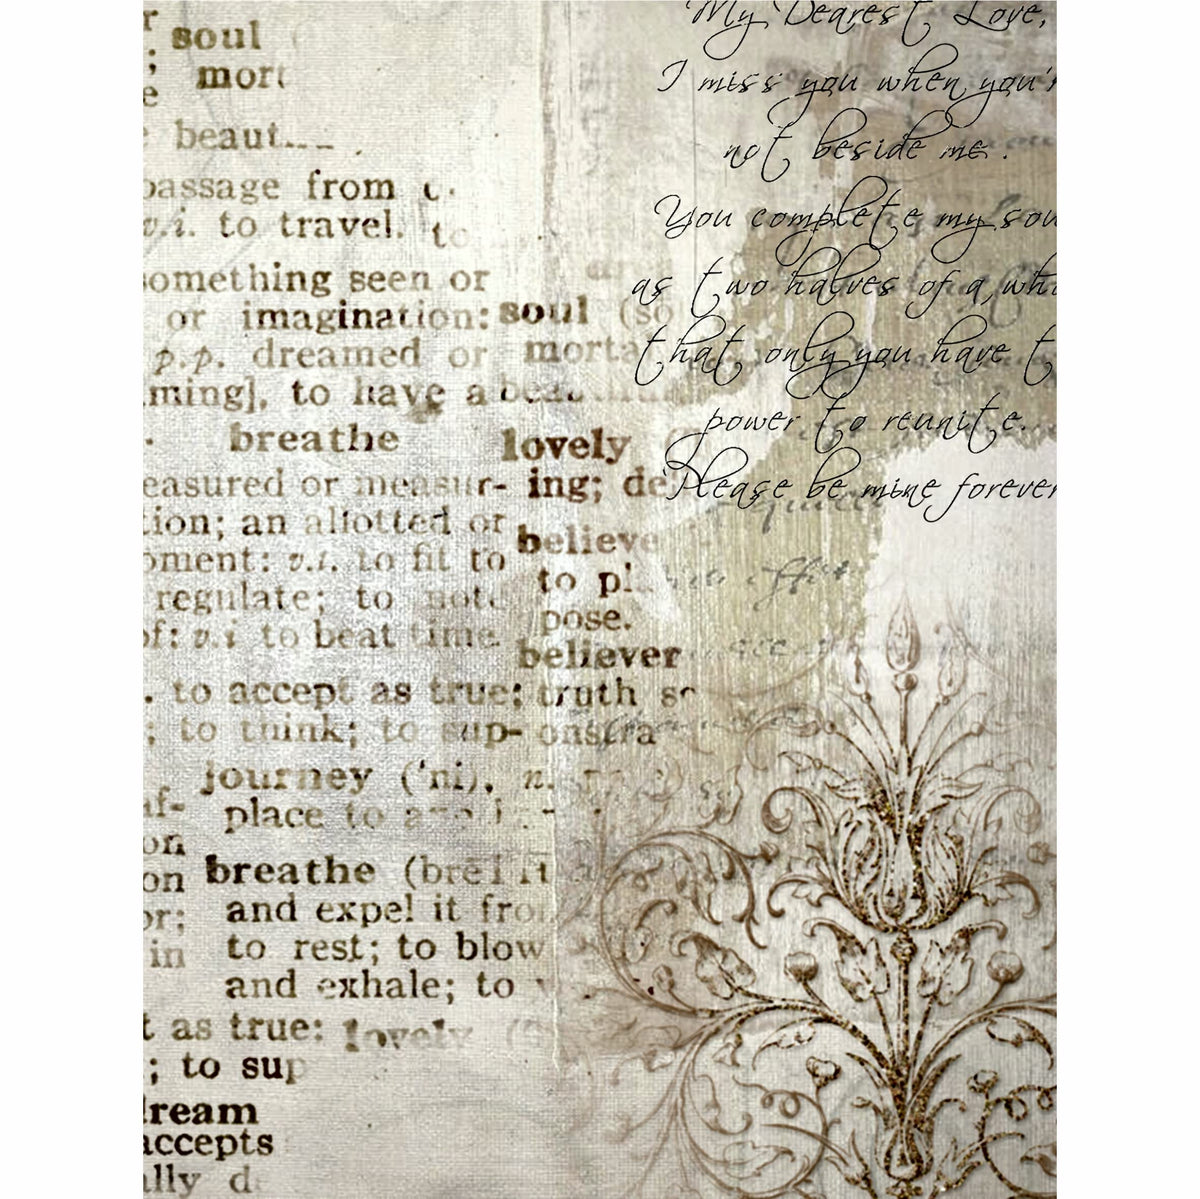 soul
mort
beaut
passage from
v.i. to travel. to
something seen or
or imagination: soul (so
p.p. dreamed or morta
ming], to have a beau
breathe lovely
easured or measur- ing; de
tion; an allotted or believe
oment: v.i. to fit to to pl
regulate; to note pose.
of: v.i to beat time. believer
. to accept as true; truth so
; to think; to sup- onstra
journey ('ni), n.
place to
on
on breathe (bre
or; and expel it fro
in to rest; to blow
and exhale; to
t as true: lovely (
; to sup
dream
accepts
ally de
My Dearest Love,
I miss you when you'r
not beside me.
You complete my sou
as two halves of a, who
that only you have t
power to reunite.
Please be mine forever